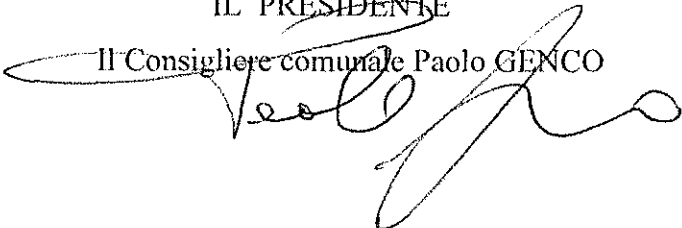 IL PRESIDENTE
Il Consigliere comunale Paolo GENCO
Paolo